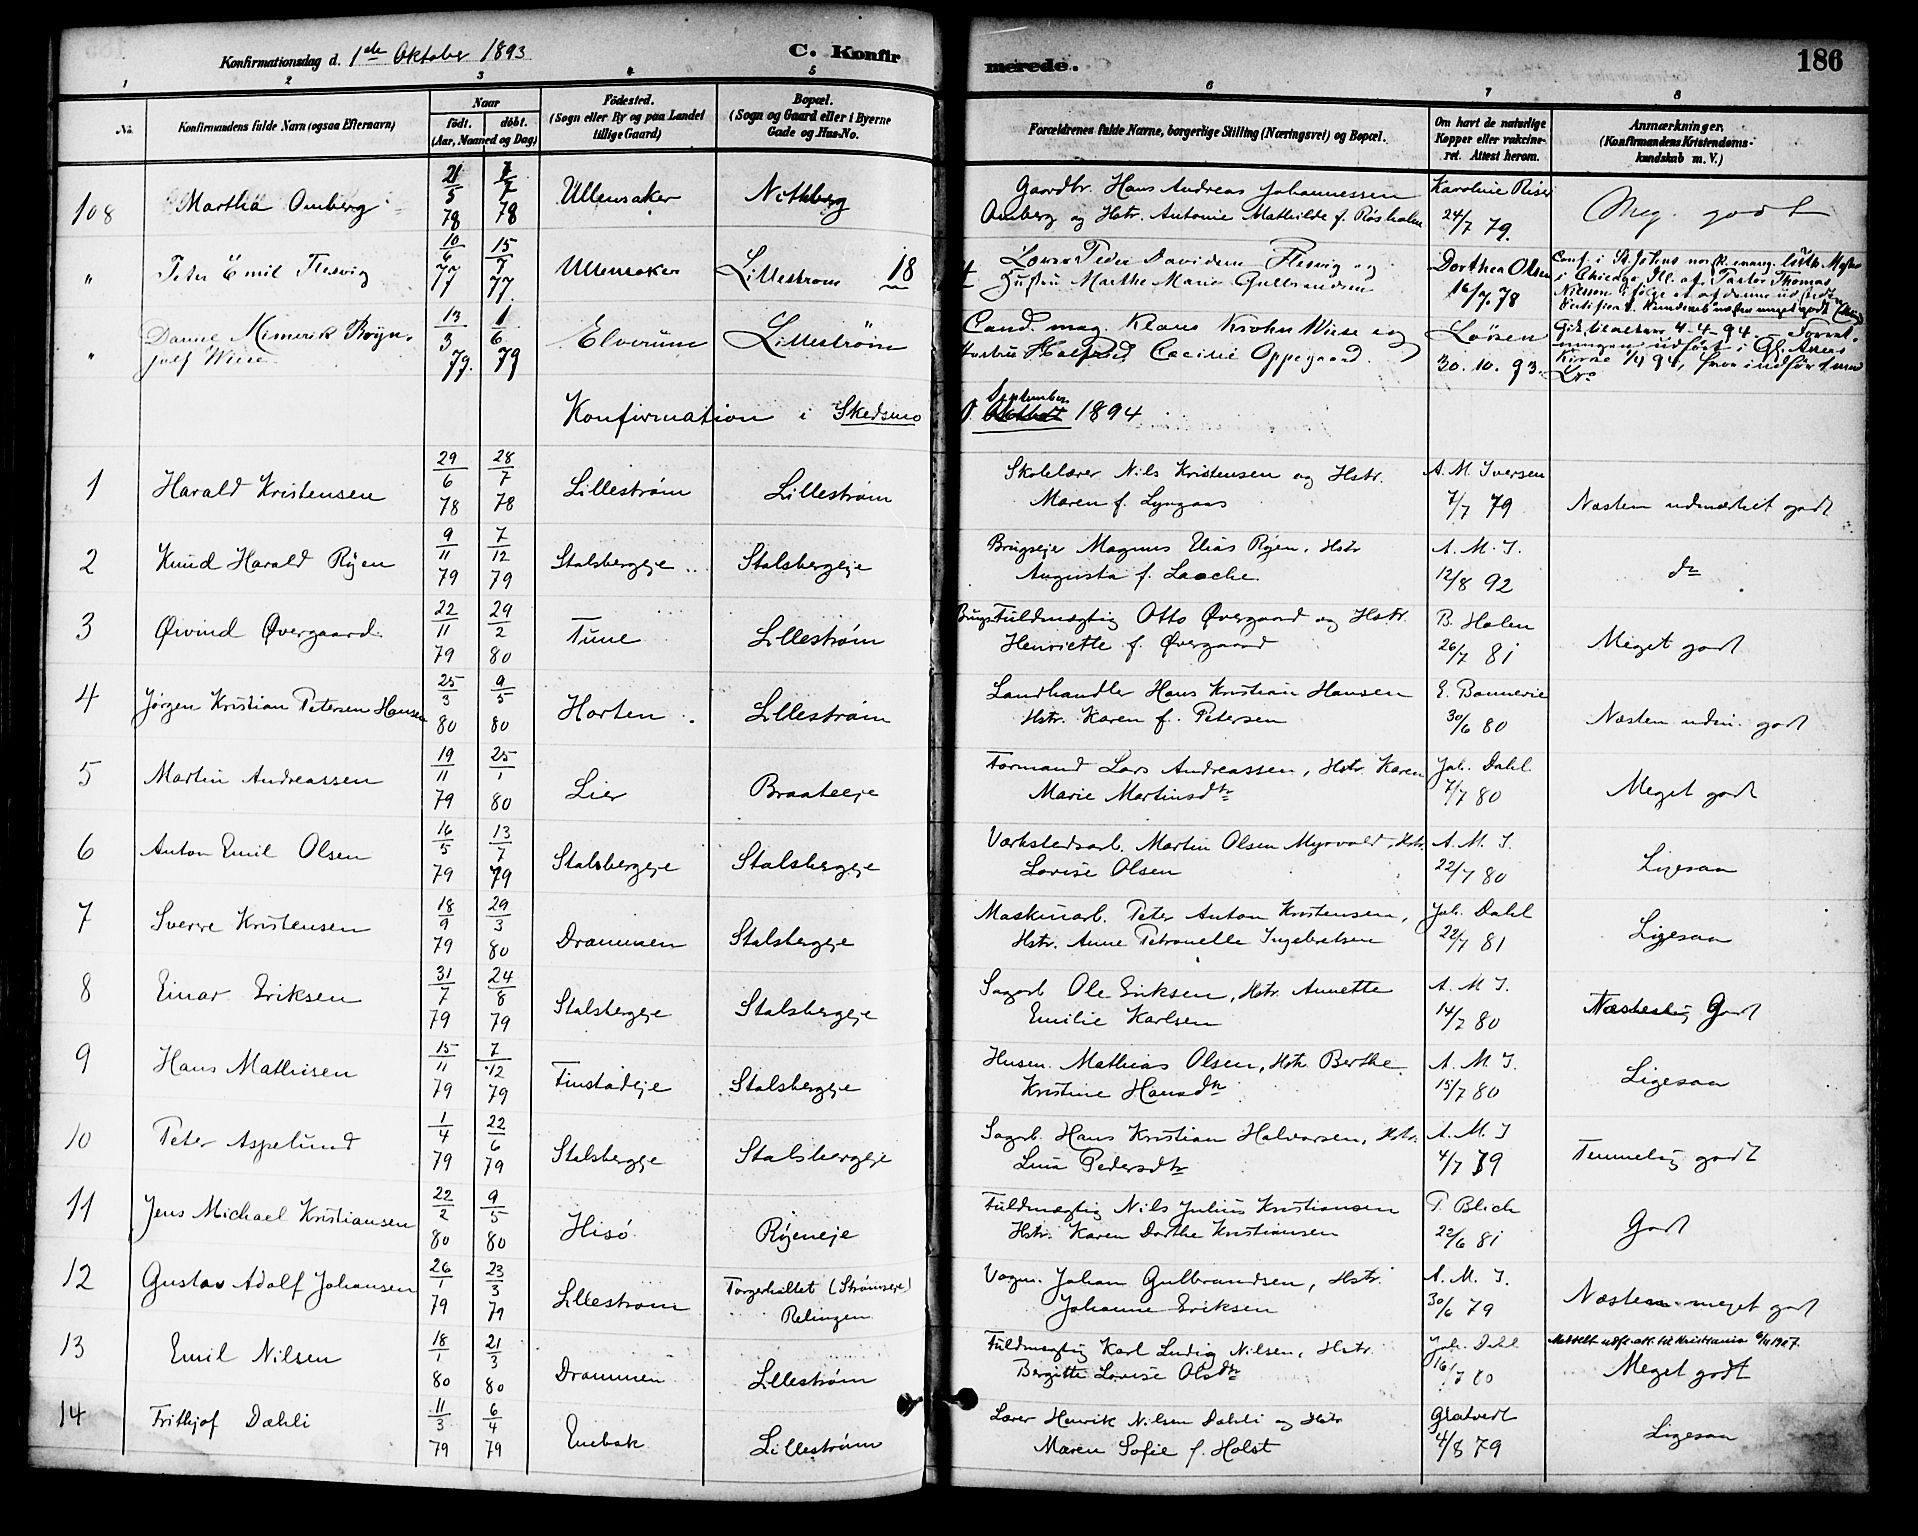 Konfirmationsdag d. 1ste Oktober 1893
C. Konfirmerede.
186
1 2 3 4 5 6 7 8
No.
Konfirmandens fulde Navn (ogsaa Efternavn)
Naar
født. døbt.
(Aar, Maaned og Dag)
Fødested.
(Sogn eller By og paa Landet
tillige Gaard)
Bopæl.
(Sogn og Gaard eller i Byerne
Gade og Hus-No.
Forældrenes fulde Navne, borgerlige Stilling (Næringsvei) og Bopæl.
Om havt de naturlige
Kopper eller vaksine-
ret. Attest herom.
Anmærkninger
(Konfirmandens Kristendoms-
kundskab m. V.)
108 Martha Omberg 21/5 78 78 Ullensaker Nitteberg
Gaardbr. Hans Andreas Johannessen
Omberg og Hstr. Antonie Mathilde f. Røisholm
Karoline Riser 24/7 79. Meg. godt
" Peter Emil Flesvig 10/6 77 15/7 77 Ullensaker Lillestrøm 18
Peder Davidsen Flesvig og
Hustru Marthe Marie Gulbrandsen
Dorthea Olsen 16/7 78
Conf. i St. Johns norsk evang. luth.
i Chicago Ill. af Pastor Thomas
Nilsson ifølge
" Danne Mimerik Brynjulf Wiese 13/3 79. 1/6 79 Elverum Lillestrøm
Cand. mag. Klaus Krohn Wiese og
Hustru Halfred Cecilie Oppegaard.
30. 10. 93.
4-4-94
Konfirmation i Skedsmo
September 1894
1 Harald Kristensen 29/6 78 28/7 78 Lillestrøm Lillestrøm
Skolelærer Nils Kristensen og Hstr.
Maren f. Lyngaas
A. M. Iversen 7/7 79 Næsten udmærket godt
2 Knud Harald Røjen 9/11 79 7/12 79 Stalsbergeje Stalsbergeje
Brugseje Magnus Elias Røjen, Hstr
Augusta f. Laache.
A. M. I. 12/8 92 do
3 Øivind Øvergaard 22/11 79 29/2 80 Tune Lillestrøm
Brugsfuldmægtig Otto Øvergaard og Hstr.
Henriette f. Øvergaard
B. Holen 26/7 81 Meget godt
4 Jørgen Kristian Petersen Hansen 25/3 80 9/5 80 Horten Lillestrøm
Landhandler Hans Kristian Hansen
Hstr. Karen f. Petersen
E. Bonnevie 30/6 80 Næsten udm. godt
5 Martin Andreassen 19/11 79 25/1 80 Lier Braateeje
Formand Lars Andreassen, Hstr. Karen
Marie Martinsdtr
Joh. Dahl 7/7 80 Meget godt
6 Anton Emil Olsen 16/5 79 13/7 79 Stalsbergeje Stalsbergeje
Værkstedsarb. Martin Olsen Myrvold, Hstr.
Lovise Olsen
A. M. I. 22/7 80 Ligesaa
7 Sverre Kristensen 18/9 79 29/3 80 Drammen Stalsbergeje
Maskinarb. Peter Anton Kristensen,
Hstr. Anne Petronelle Ingebretsen
Joh. Dahl 22/7 81 Ligesaa
8 Einar Eriksen 31/7 79 24/8 79 Stalsbergeje Stalsbergeje
Sagarb Ole Eriksen, Hstr. Annette
Emilie Karlsen
A. M I. 14/7 80 Godt
9 Hans Mathisen 15/11 79 7/12 79 Finstadeje Stalsbergeje
Husm. Mathias Olsen, Hstr Berthe
Kristine Hansdtr
A. M. I. 15/7 80 Ligesaa
10 Peter Aspelund 1/4 79 22/6 79 Stalsbergeje Stalsbergeje
Sagarb. Hans Kristian Halvorsen, Hstr.
Lina Pedersdtr
A. M. I 4/7 79 Temmelig godt
11 Jens Michael Kristiansen 22/2 80 9/5 80 Hisø Røjeneje
Fuldmægtig Nils Julius Kristiansen
Hstr. Karen Dorthe Kristiansen
P. Blich 22/6 81 Godt
12 Gustav Adolf Johansen 26/1 79 23/3 79 Lillestrøm Torgerhullet (Strømseje)
Relingen
Vogm. Johan Gulbrandsen, Hstr.
Johanne Eriksen
A. M. I. 30/6 79 Næsten meget godt
13 Emil Nilsen 18/1 80 21/3 80 Drammen Lillestrøm
Fuldmægtig Karl Ludvig Nilsen, Hstr.
Bergitte Lovise Olsdtr
Joh. Dahl 16/7 80
Meldt udfl. att. til Kristiania 6/11 1907.
Meget godt
14 Frithjof Dæhli 11/3 79 6/4 79 Enebak Lillestrøm
Lærer Henrik Nilsen Dæhli og Hstr
Maren Sofie f. Holst
Gratvedt 4/8 79 Ligesaa